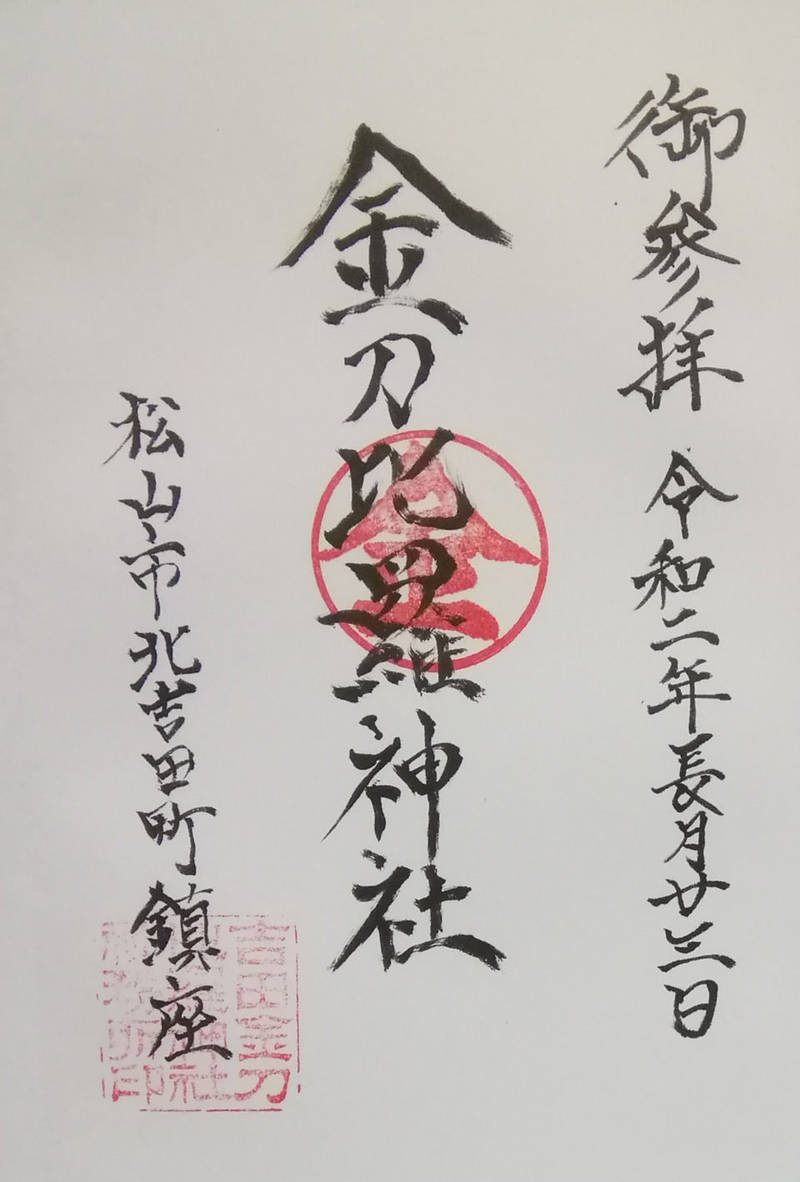 御参拝 令和二年長月廿三日
金刀比羅神社
松山市北吉田町鎮座
金
吉田金刀
比羅神社
社務所印